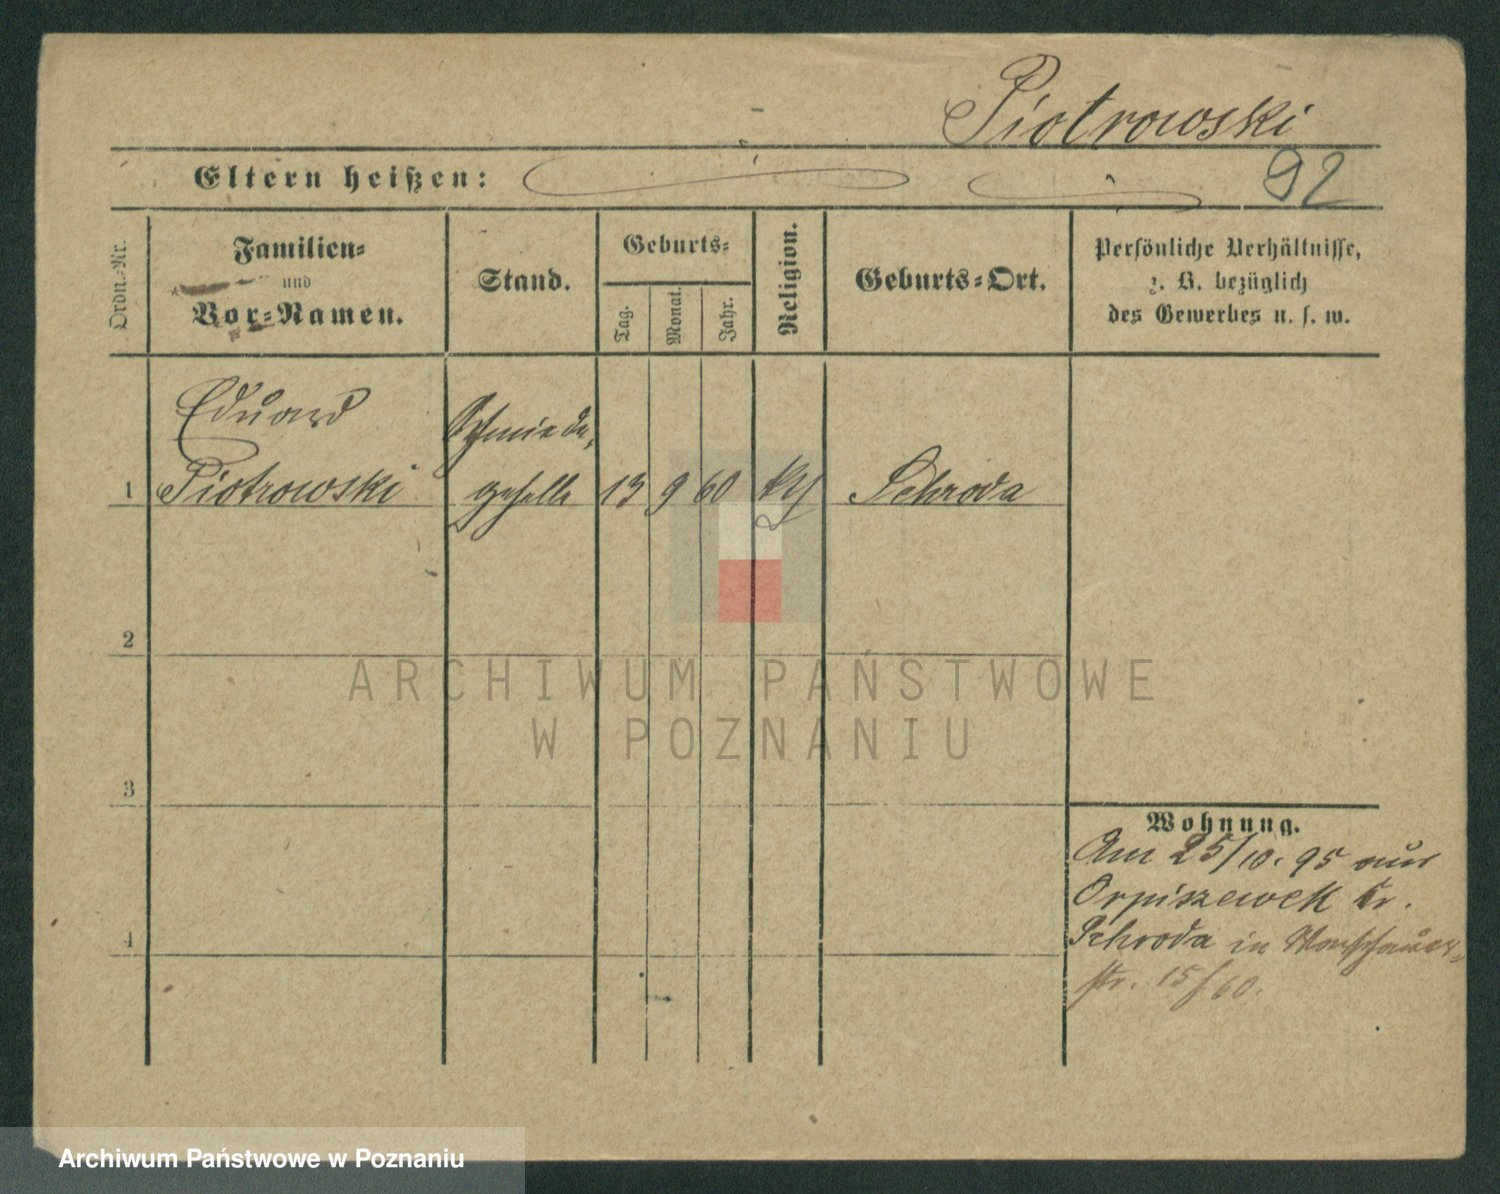 Piotrowski
Eltern heißen:
92
Ordn.-Nr.
Familien-
und
Vor-Namen.
Stand.
Geburts-
Tag.
Monat.
Jahr.
Religion.
Geburts-Ort.
Persönliche Verhältnisse,
z. B. bezüglich
des Gewerbes u. s. w.
Eduard
Schmiede-
1 Piotrowski geselle 13 9 60 kth Schroda
2
3
4
Wohnung.
Am 25/10. 95 aus
Orpiszewek Kr.
Schroda in Warschauer-
str. 15/60.
ARCHIWUM PAŃSTWOWE
W POZNANIU
Archiwum Państwowe w Poznaniu